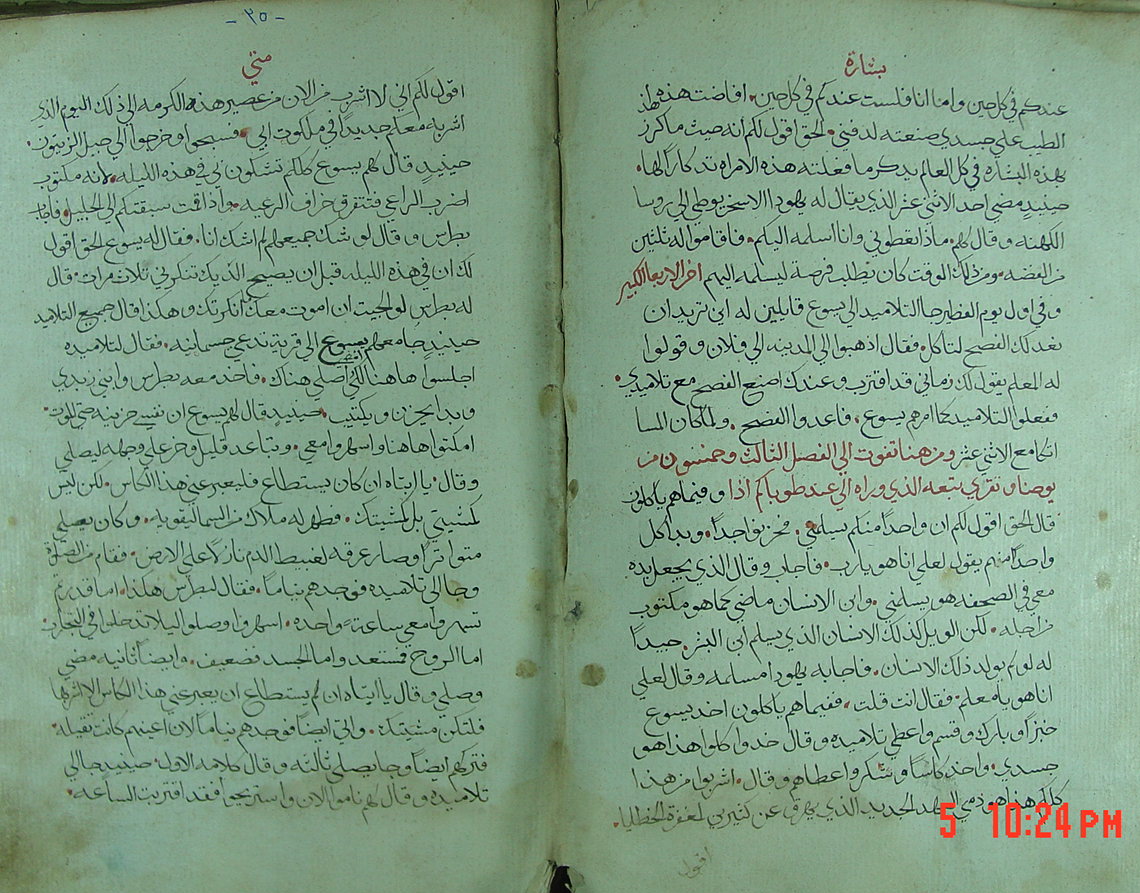 بشارة
عندكم في كل حين واما انا فلست عندكم في كل حين. افاضت هذه هذا
الطيب على جسدي صنعته لدفني. الحق اقول لكم انه حيث ما كرز
بهذه البشاره في كل العالم يدكر ما فعلته هذه الامراه تدكاراً لها.
حينيدٍ مضى احد الاثنى عشر الذي يقال له يهودا الاسخريوطي الى روسا
الكهنه وقال لهم. ماذا تعطوني وانا اسلمه اليكم. فاقاموا له تلثين
من الفضه. ومن ذلك الوقت كان يطلب فرصة ليسلمه اليهم اخر الاربعا الكبير
وفي اول يوم الفطير جا التلاميد الى يسوع قايلين له اين تريد ان
نعد لك الفصح لتاكل. فقال اذهبوا الى المدينه الى فلان وقولوا
له المعلم يقول لك زماني قد اقترب وعندك اصنع الفصح مع تلاميدي.
ففعلوا التلاميد كما امرهم يسوع. فاعدوا الفصح. ولما كان المسا
اتكا مع الاثنى عشر ومن هنا تفوت الى الفصل الثالث وخمسون من
يوحنا وتقرى بتبعه الذي وراه الى عند طوباكم اذا وفيما هم ياكلون
قال الحق اقول لكم ان واحداً منكم يسلمني. فحزنوا جداً. وبدا كل
واحداً منهم يقول لعلي انا هو يارب. فاجاب وقال الذي يجعل يده
معي في الصحفه هو يسلمني. وابن الانسان ماضي كما هو مكتوب
من اجله. لكن الويل لذلك الانسان الذي يسلم ابن البشر. جيداً
له لو لم يولد ذلك الانسان. فاجابه يهودا مسلمه وقال لعلي
انا هو يا معلم. فقال انت قلت. ففيما هم ياكلون اخد يسوع
خبزاً وبارك وقسم واعطى تلاميده وقال خدوا كلوا هذا هو
جسدي. واخد كاساً وشكر واعطاهم وقال. اشربوا من هذا
كلكم هذا هو دمي العهد الجديد الذي يهرق عن كثيرين لمغفرة الخطايا.
اقول
-٢٥-
متي
اقول لكم اني لا اشرب من الان من عصير هذه الكرمه الى ذلك اليوم الذي
اشربه معكم جديداً في ملكوت ابي. فسبحوا وخرجوا الى جبل الزيتون.
حينيدٍ قال لهم يسوع كلكم تشكون في في هذه الليله. لانه مكتوب
اضرب الراعي فتتفرق خراف الرعيه. واذا قمت سبقتكم الى الجليل. فاجاب
بطرس وقال لو شك جميعهم لم اشك انا. فقال له يسوع الحق اقول
لك ان في هذه الليله قبل ان يصيح الديك تنكرني ثلاث مرات. قال
له بطرس لو الجيت ان اموت معك ما انكرتك وهكذا قال جميع التلاميد
حينيدٍ جا معهم يسوع الى قرية تدعى جسمانيه. فقال لتلاميده
اجلسوا هاهنا لكي امضي اصلي هناك. فاخد معه بطرس وابني زبدي
وبدا يحزن ويكتيب. حينيدٍ قال لهم يسوع ان نفسي حزينه حتى الموت
امكتوا هاهنا واسهروا معي. وتباعد قليل وخر على وجهه ليصلي
وقال. يا ابتاه ان كان يستطاع فليعبر عني هذا الكاس. لكن ليس
كمشيتي بل كمشيتك. فظهر له ملاك من السما ليقويه. وكان يصلي
متواتراً وصار عرقه كعبيط الدم نازلاً على الارض. فقام من الصلاه
وجا الى تلاميده فوجدهم نياماً. فقال لبطرس هكذا. اما قدرتم
تسهروا معي ساعةً واحده. اسهروا وصلوا ليلا تدخلوا في التجارب
اما الروح فمستعد واما الجسد فضعيف. وايضاً ثانيه مضى
وصلى وقال يا ابتاه ان لم يستطاع ان يعبر عني هذا الكاس الا اشربها
فلتكن مشيتك. واتى ايضاً فوجدهم نياماً لان اعينهم كانت ثقيله.
فتركهم ايضاً وجا يصلي ثالثه وقال كلامه الاول. حينيدٍ جا الى
تلاميده وقال لهم ناموا الان واستريحوا فقد اقتربت الساعه.
5 10:24 PM